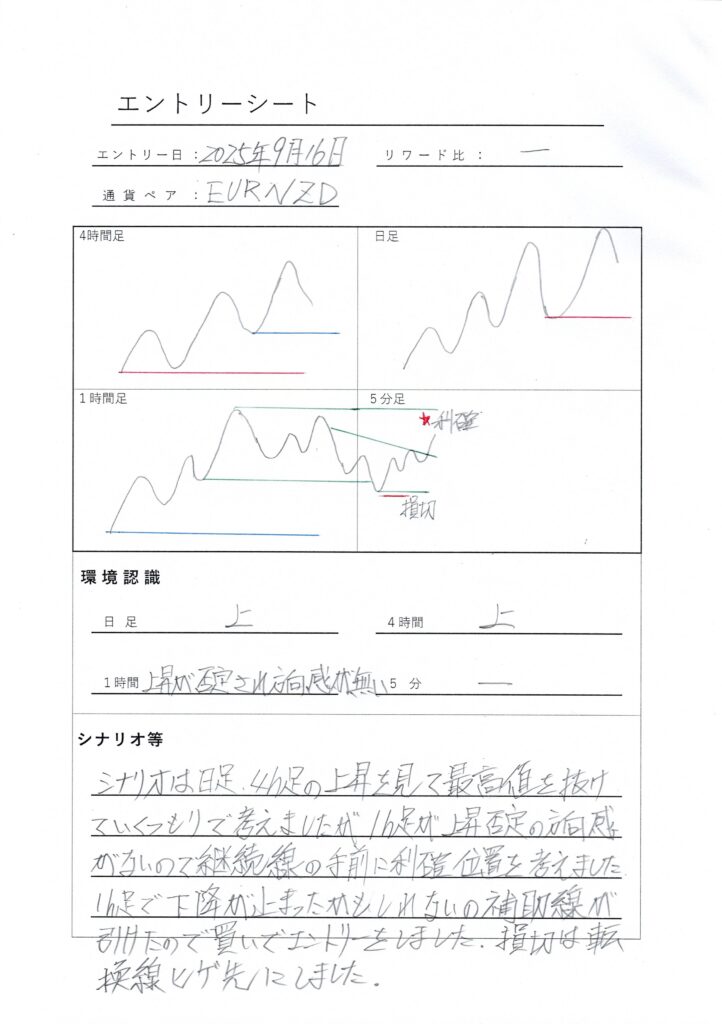 エントリーシート
エントリー日：2025年9月16日
リワード比： ー
通貨ペア：EURNZD
4時間足
日足
1時間足
5分足
★利確
損切
環境認識
日足 上
4時間 上
1時間 上昇が否定され方向感が無い
5分 ー
シナリオ等
シナリオは日足、4h足の上昇を見て最高値を抜け
ていくつもりで考えましたが 1h足が上昇否定の方向感
がないので継続線の手前に利確位置を考えました
1h足で下降が止まったかもしれないの補助線が
引けたので買いでエントリーをしました。損切は転
換線ヒゲ先にしました。